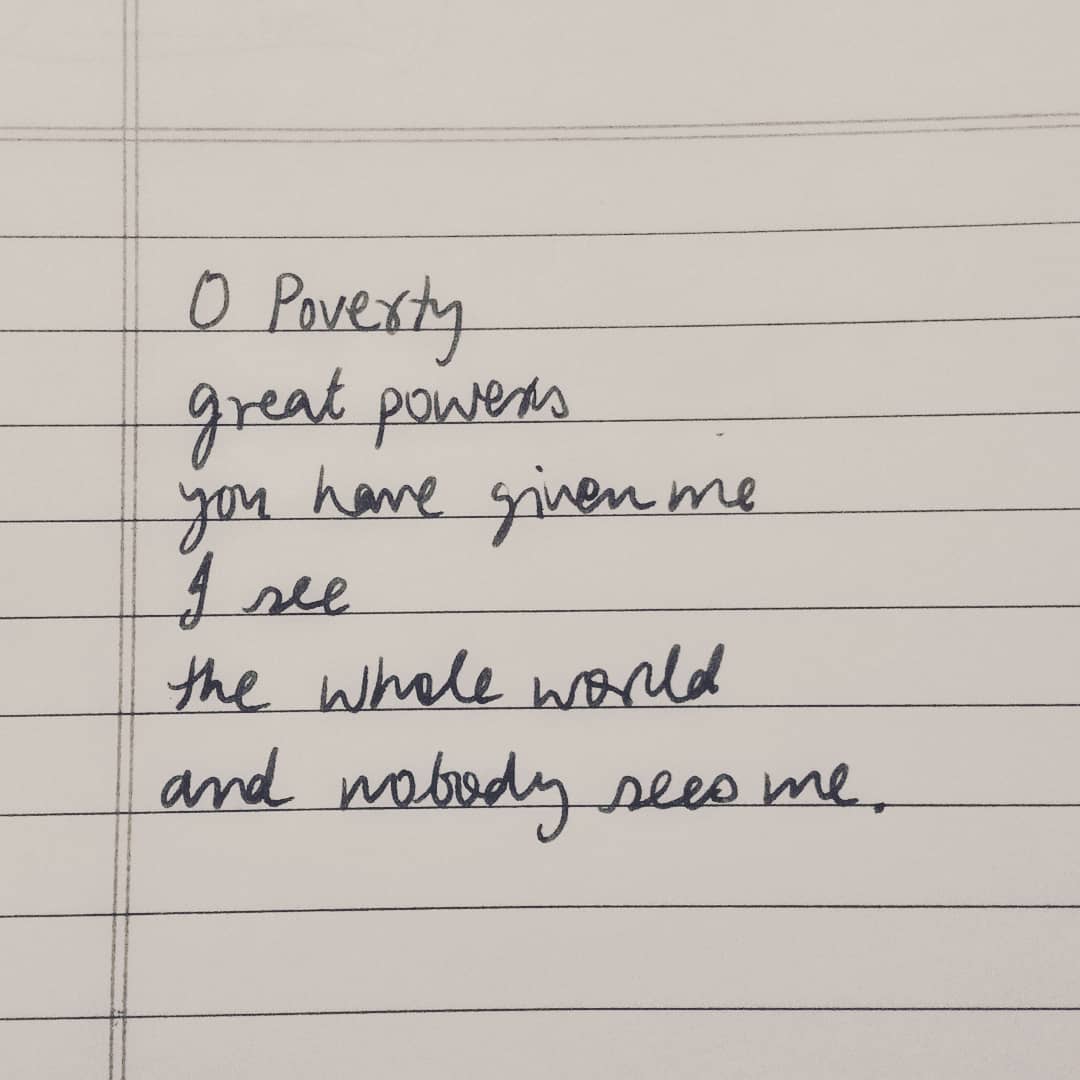 O Poverty
great powers
you have given me
I see
the whole world
and nobody sees me.